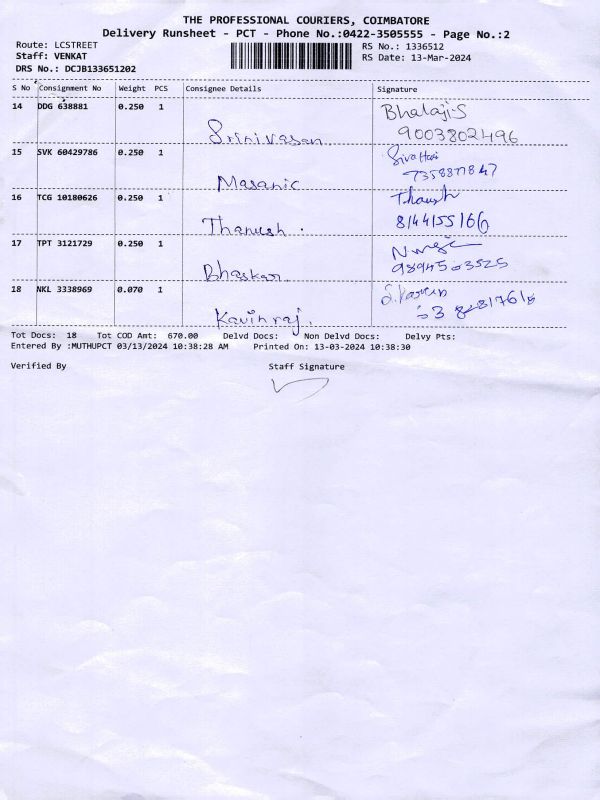 THE PROFESSIONAL COURIERS, COIMBATORE
Delivery Runsheet - PCT - Phone No.:0422-3505555 - Page No.:2
Route: LCSTREET RS No.: 1336512
Staff: VENKAT RS Date: 13-Mar-2024
DRS No.: DCJB133651202
S No Consignment No Weight PCS Consignee Details Signature
14 DDG 638881 0.250 1 Srinivasan Bhalaji.S
9003802496
15 SVK 60429786 0.250 1 Masanic Siva Hari
16 TCG 10180626 0.250 1 Thanush . Thanush
8144155166
17 TPT 3121729 0.250 1 Bhaskar
18 NKL 3338969 0.070 1 Kavinraj.
Tot Docs: 18 Tot COD Amt: 670.00 Delvd Docs: Non Delvd Docs: Delvy Pts:
Entered By :MUTHUPCT 03/13/2024 10:38:28 AM Printed On: 13-03-2024 10:38:30
Verified By Staff Signature